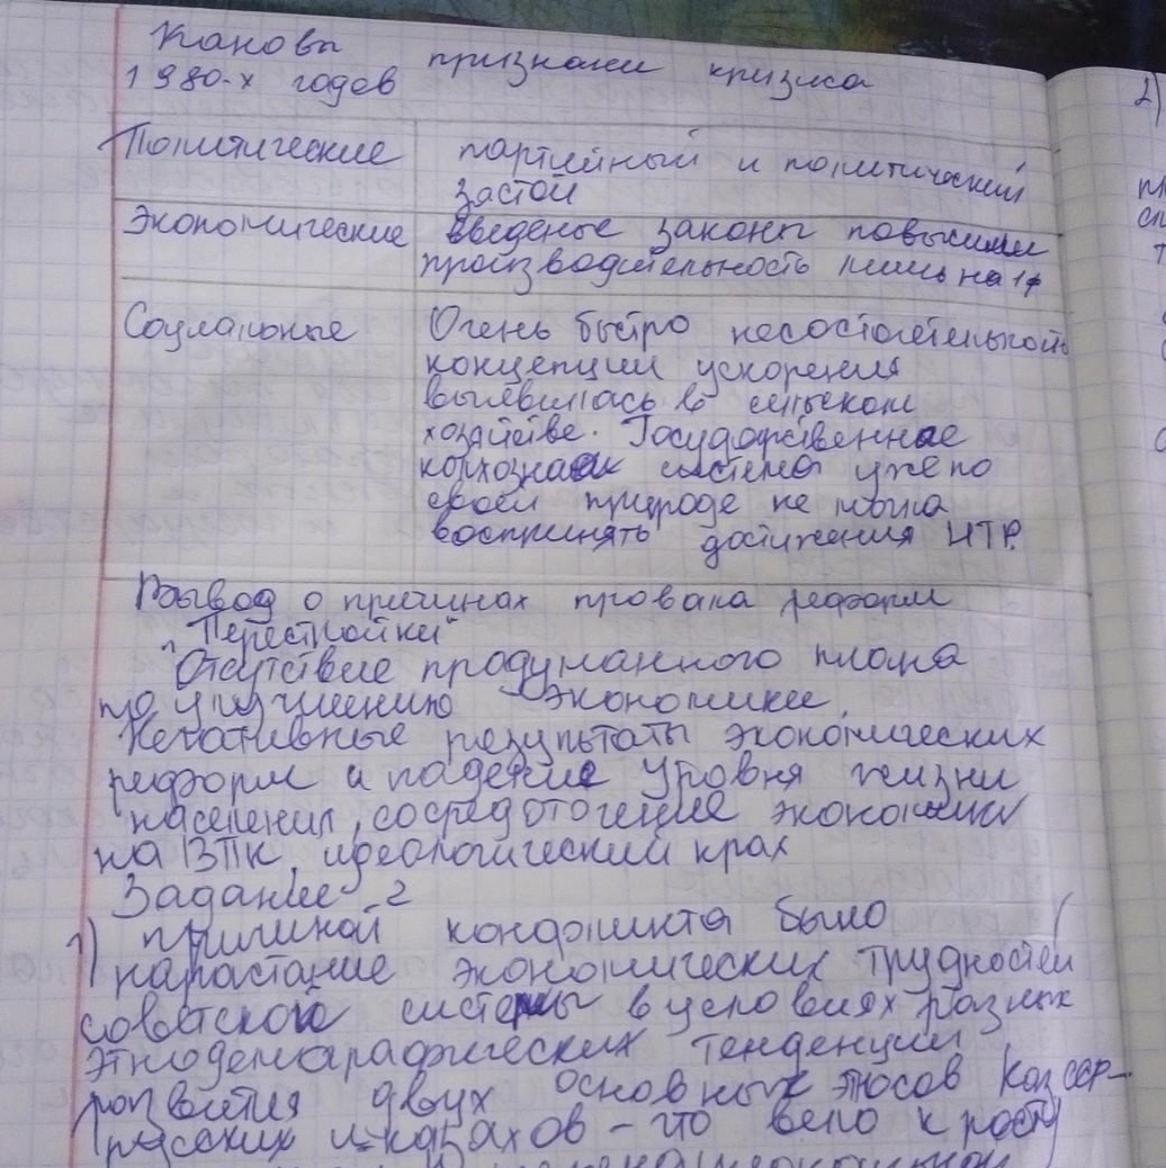 Каковы признаки кризиса
1980-х годов
Политические партийный и политический
застой
Экономические введеные законы повысили
производительность лишь на 1%
Социальные Очень быстро несостоятельность
концепции ускорения
выявилась в сельском
хозяйстве. Государственная
колхозная система уже по
своей природе не могла
воспринять достижения НТР.
Вывод о причинах провала реформ
"Перестройки"
Отсутствие продуманного плана
по улучшению экономики,
Негативные результаты экономических
реформ и падение уровня жизни
населения, сосредоточение экономики
на ВПК, идеологический крах
Задание 2
1) причиной конфликта было
нарастание экономических трудностей
советской системы в условиях разных
этнодемографических тенденций
развития двух основных этносов КазССР-
русских и казахов - что вело к росту
2)